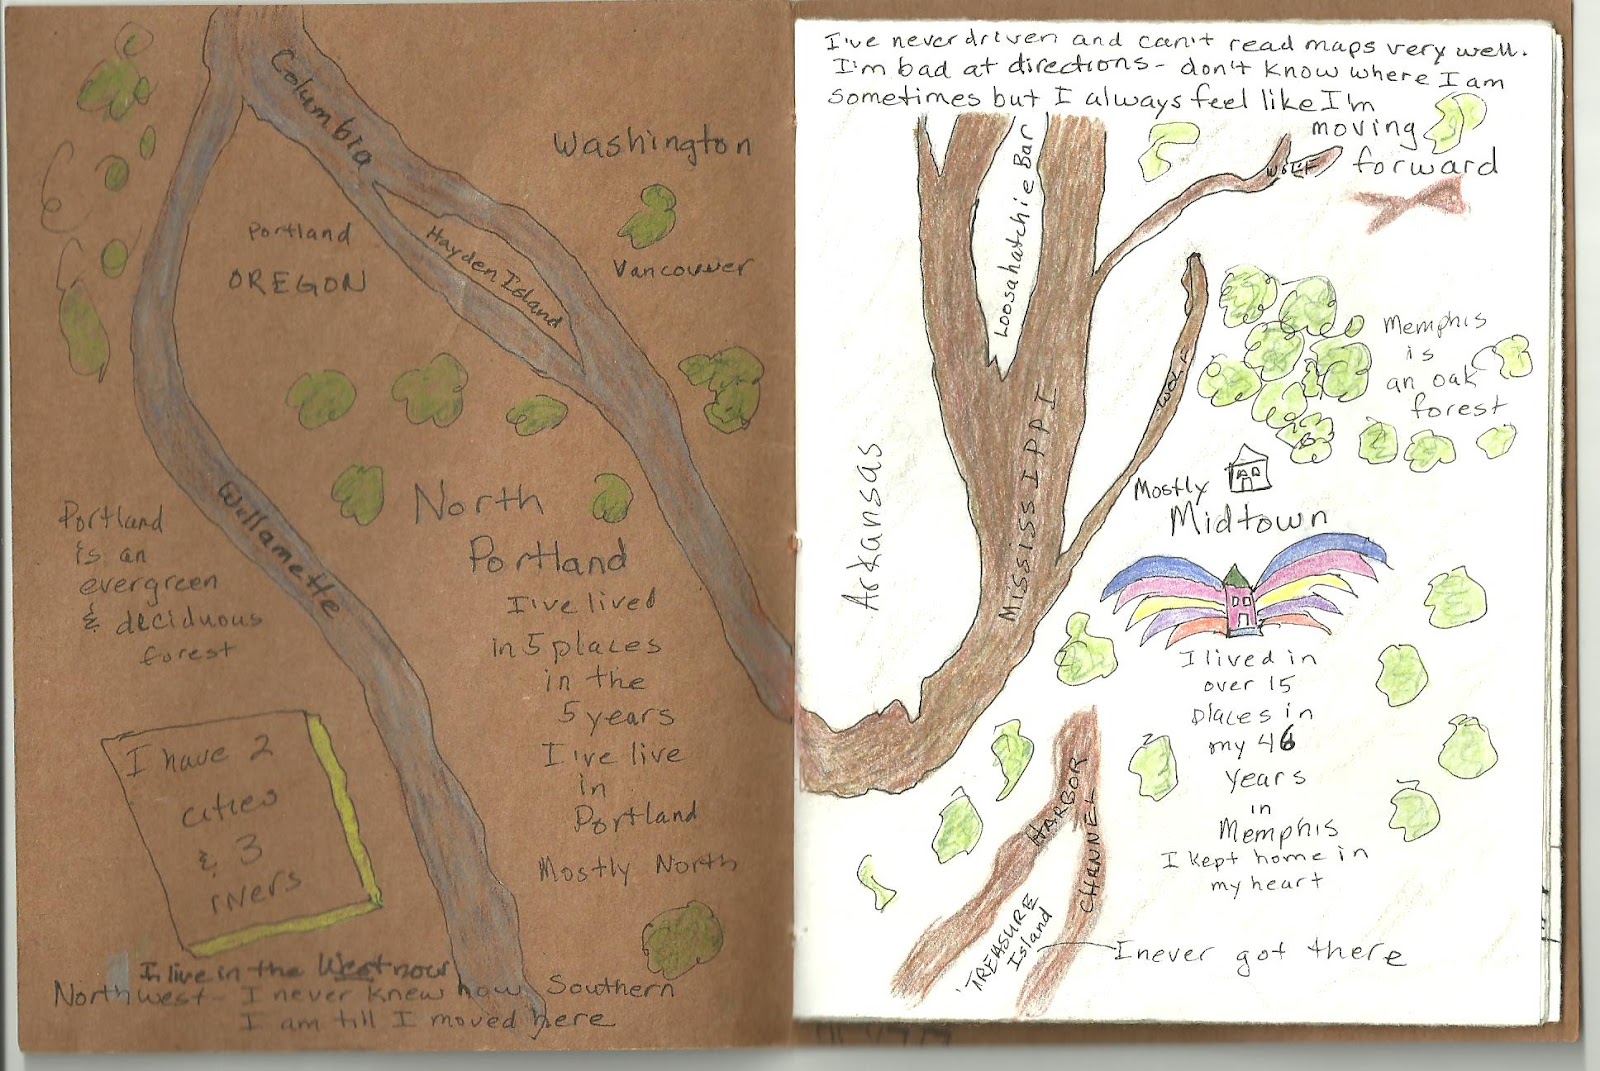 Columbia
Washington
Portland
OREGON
Hayden Island
Vancouver
Willamette
North
Portland
I've lived
in 5 places
in the
5 years
I've live
in
Portland
Mostly North
Portland
is an
evergreen
& deciduous
forest
I have 2
cities
& 3
rivers
I live in the West now
Northwest - I never knew how Southern
I am till I moved here
I've never driven and can't read maps very well.
I'm bad at directions - don't know where I am
sometimes but I always feel like I'm
moving
forward
Wolf
Loosahatchie Bar
Wolf
Mississippi
Arkansas
Memphis
is
an oak
forest
Mostly
Midtown
I lived in
over 15
places in
my 46
years
in
Memphis
I kept home in
my heart
HARBOR
CHANNEL
TREASURE
Island
I never got there